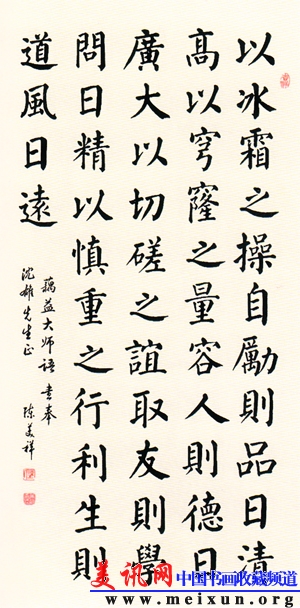 以冰霜之操自勵則品日清
高以穹窿之量容人則德日
廣大以切磋之誼取友則學
問日精以慎重之行利生則
道風日遠
藕益大师语 书奉
沈雄先生正
陈美祥
美讯网
中国书画收藏频道
www.meixun.org